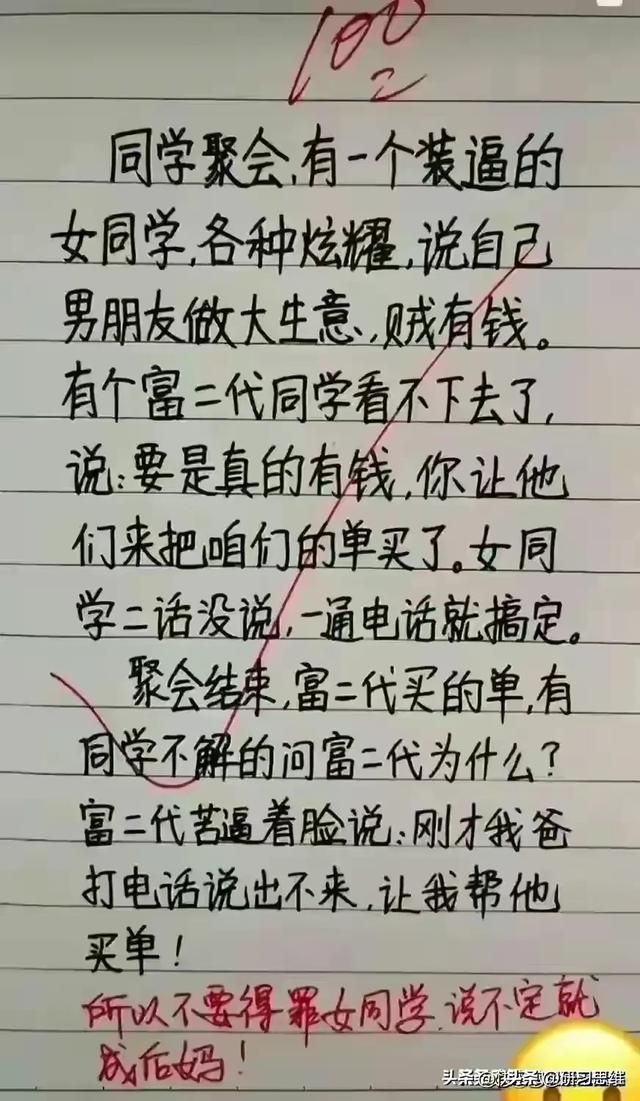 100
同学聚会,有一个装逼的
女同学,各种炫耀,说自己
男朋友做大生意,贼有钱。
有个富二代同学看不下去了,
说:要是真的有钱,你让他
们来把咱们的单买了。女同
学二话没说,一通电话就搞定。
聚会结束,富二代买的单,有
同学不解的问富二代为什么?
富二代苦逼着脸说:刚才我爸
打电话说出不来,让我帮他
买单!
所以不要得罪女同学,说不定就
成后妈!
头条 @研习思维